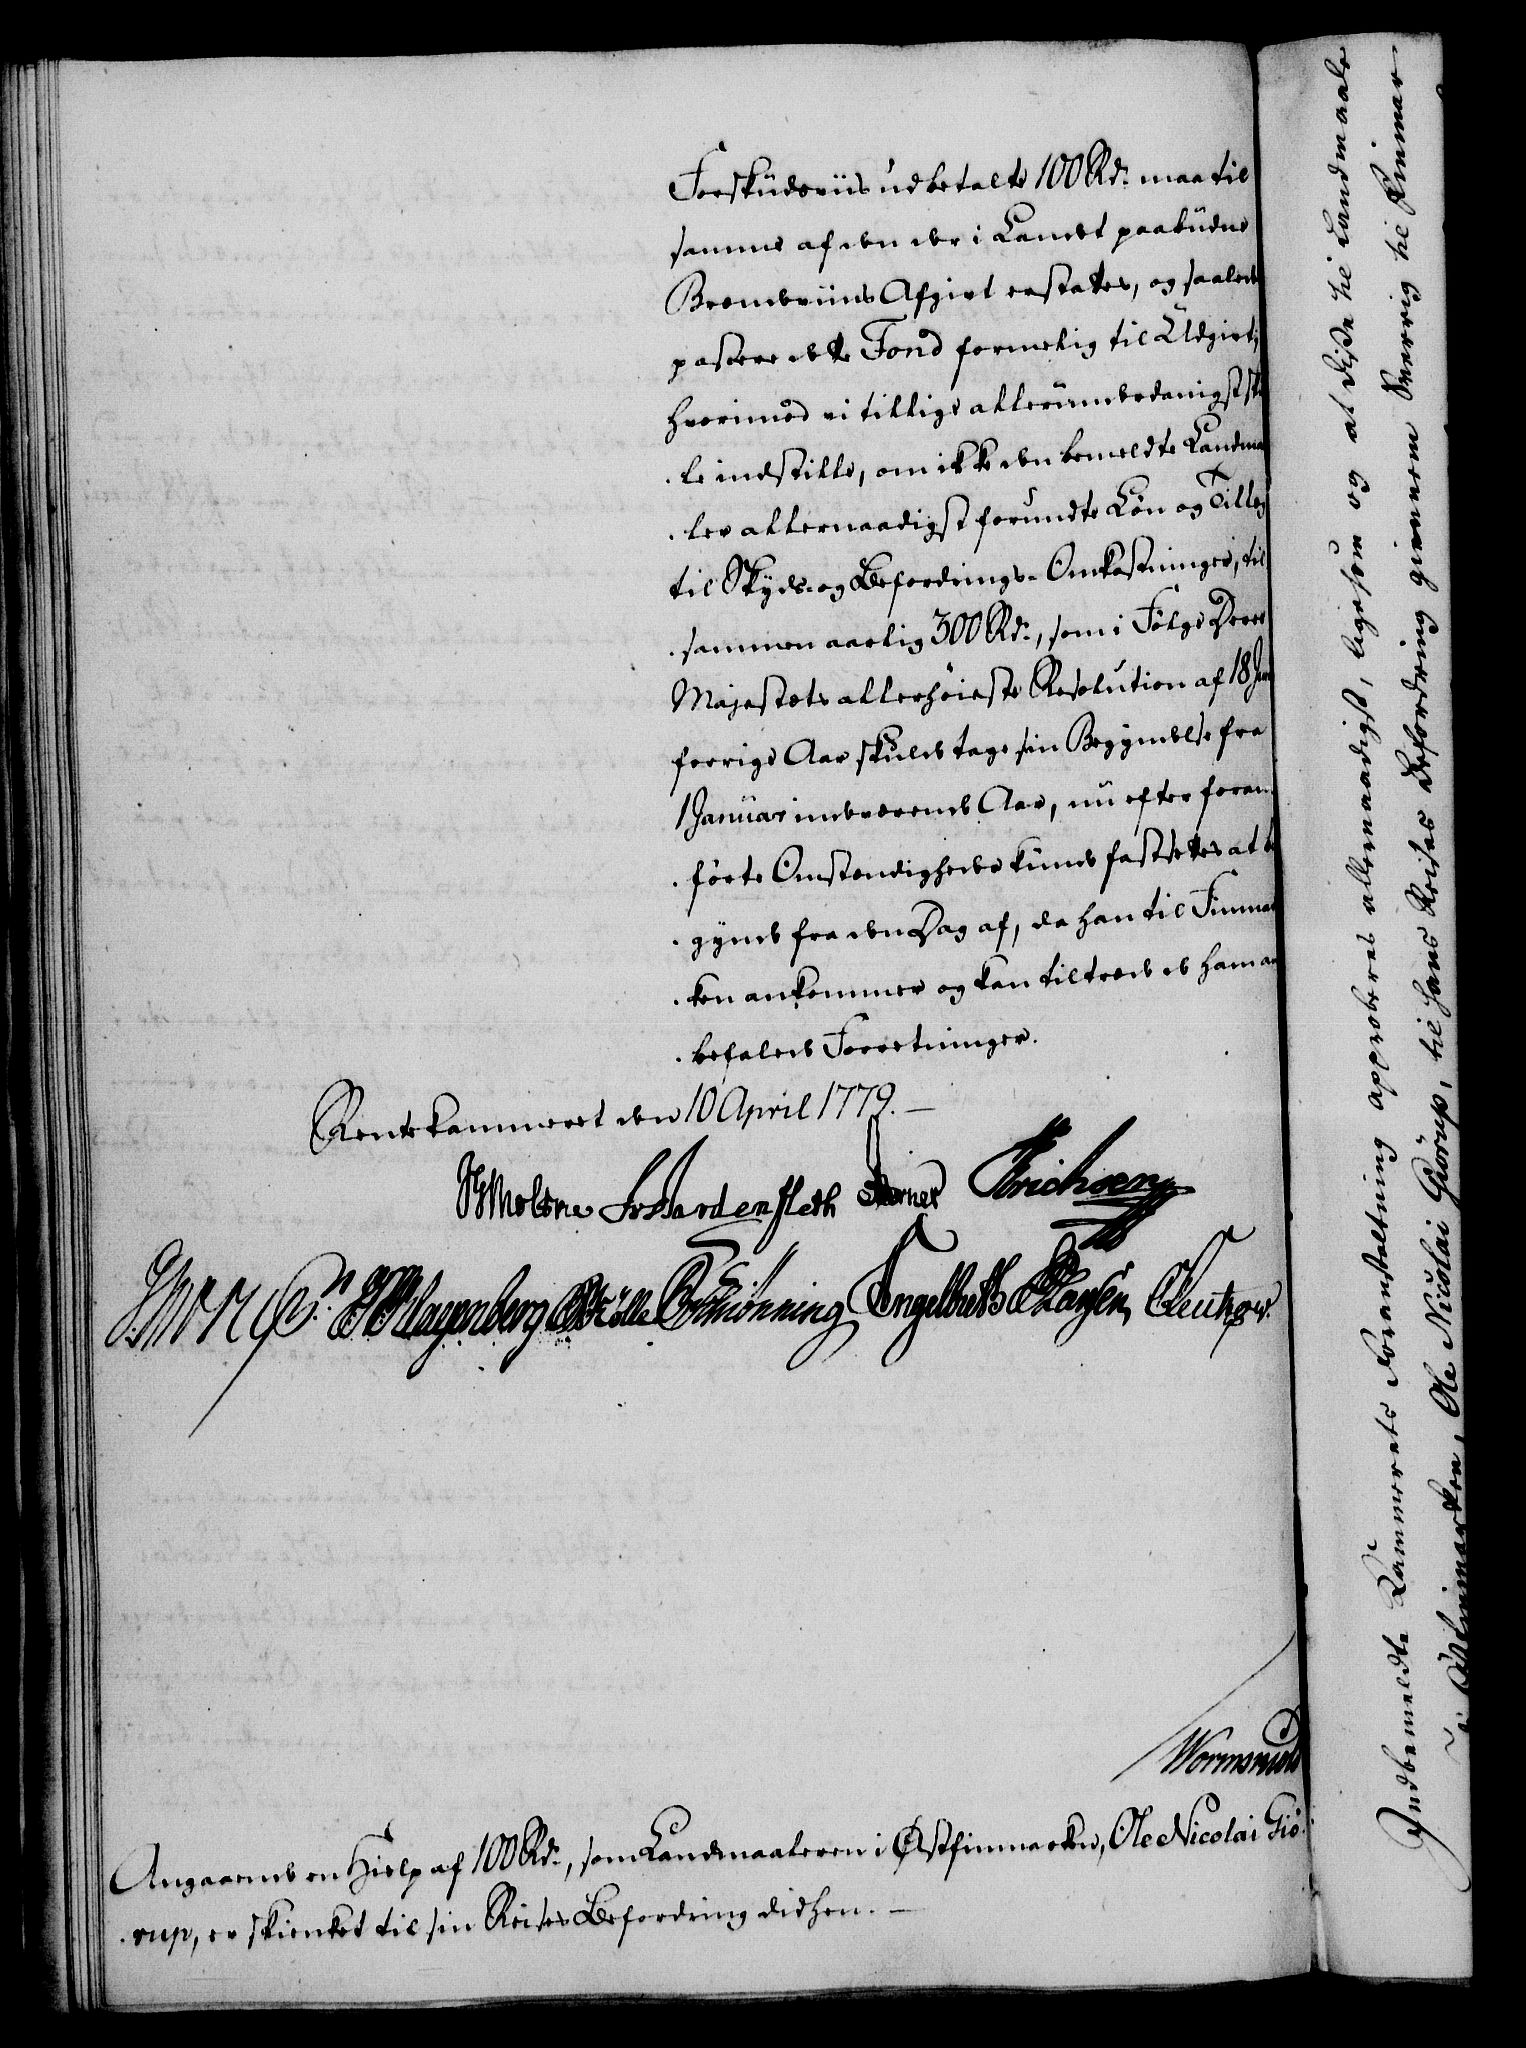 Forskudsviis udbetalte 100 Rd. maa til
samme af den der i Landet paabudne
Brændeviins Afgivt erstattes, og saalede
passere dette Fond formelig til Udgivt;
hvorimod vi tillige allerunderdanigst sku
le indstille, om ikke den bemeldte Landmaa
ler allernaadigst forundte Løn og Tillæg
til Skyds- og Befordrings-Omkostninger, til
sammen aarlig 300 Rd., som i Følge Deres
Majestæts allerhøieste Resolution af 18 Jun
forrige Aar skulde tage sin Begyndelse fra
1 Januar indeværende Aar, nu efter foran
førte Omstændigheder kunde fastsettes at be
gynde fra den Dag af, da han til Finmar
ken ankommer og kan tiltræde de ham an
befalede Forretninger.
Rentekammeret den 10 April 1779. —
Moltke Hardenfleth Berner Erichsen
Klagenberg Schiønning Engelbreth Hansen
Wormskiold
Angaaende en Hielp af 100 Rd., som Landmaaleren i Østfinmarken, Ole Nicolai Giø
rup, er skienket til sin Reises Befordring didhen. —
Indbemeldte Kammerets Foranstaltning approberes allernaadigst, ligesom og at disse til Landmaale
i Østfinmarken, Ole Nicolai Giörup, til hans Reises Befordring giennem Sverrig til Finmar